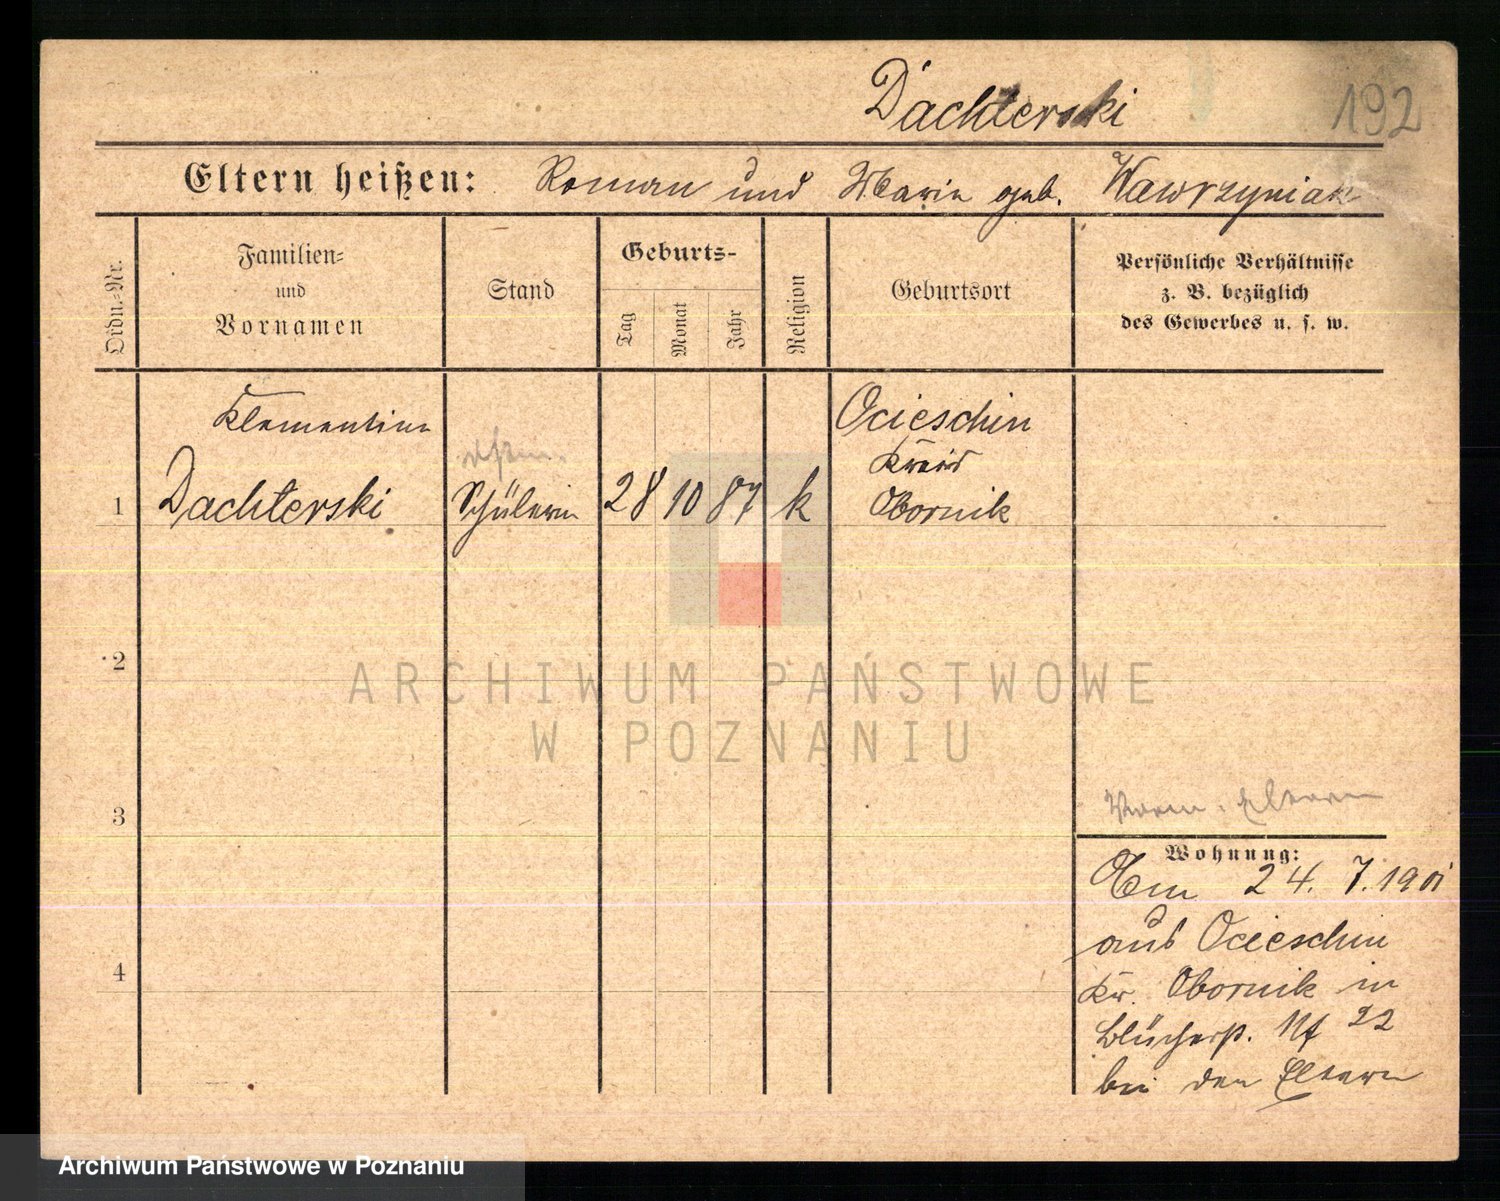 Dachterski
192
Eltern heißen: Roman und Maria geb. Wawrzyniak
Ordn.=Nr.
Familien=
und
Vornamen
Stand
Geburts-
Tag
Monat
Jahr
Religion
Geburtsort
Persönliche Verhältnisse
z. B. bezüglich
des Gewerbes u. s. w.
Klementine
Ocieschin
Kreis
1 Dachterski Schülerin 28 10 87 k Obornik
2
ARCHIWUM PAŃSTWOWE
W POZNANIU
3
Eltern
Wohnung:
Am 24. 7. 1901
aus Ocieschin
Kr. Obornik in
4
Blücherst. Nr 22
bei den Eltern
Archiwum Państwowe w Poznaniu